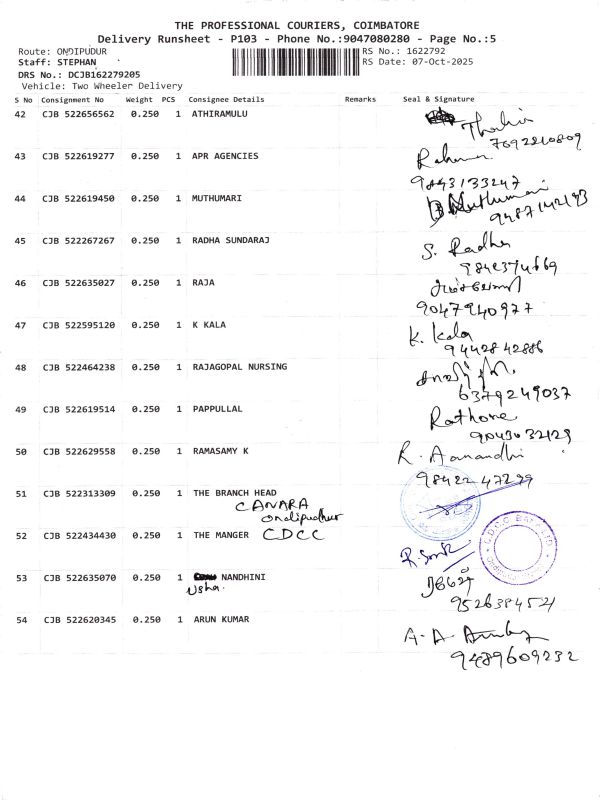 THE PROFESSIONAL COURIERS, COIMBATORE
Delivery Runsheet - P103 - Phone No.:9047080280 - Page No.:5
Route: ONDIPUDUR RS No.: 1622792
Staff: STEPHAN RS Date: 07-Oct-2025
DRS No.: DCJB162279205
Vehicle: Two Wheeler Delivery
S No Consignment No Weight PCS Consignee Details Remarks Seal & Signature
42 CJB 522656562 0.250 1 ATHIRAMULU
7692210809
43 CJB 522619277 0.250 1 APR AGENCIES
9843133247
44 CJB 522619450 0.250 1 MUTHUMARI Muthumari
9487142193
45 CJB 522267267 0.250 1 RADHA SUNDARAJ S. Radha
9842374669
46 CJB 522635027 0.250 1 RAJA
9047940977
47 CJB 522595120 0.250 1 K KALA K. Kala
9442842886
48 CJB 522464238 0.250 1 RAJAGOPAL NURSING
6379249037
49 CJB 522619514 0.250 1 PAPPULLAL Rathore
9043032129
50 CJB 522629558 0.250 1 RAMASAMY K R. Aanandhi
9842247299
51 CJB 522313309 0.250 1 THE BRANCH HEAD
CANARA
Ondipudhur
52 CJB 522434430 0.250 1 THE MANGER CDCC
53 CJB 522635070 0.250 1 NANDHINI
Usha.
9526384521
54 CJB 522620345 0.250 1 ARUN KUMAR
9489609232